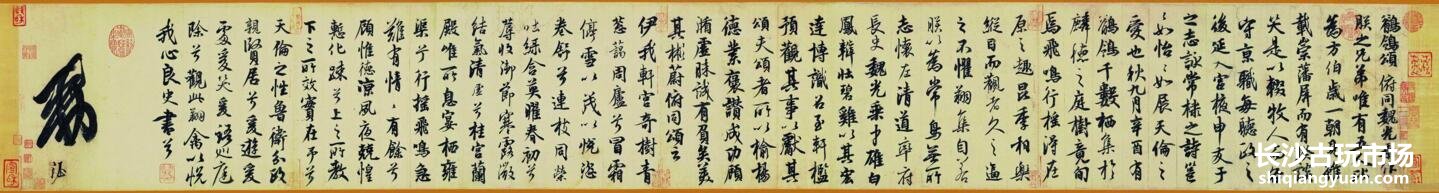 鶺鴒頌 俯同魏光
朕之兄弟唯有五
為方伯歲一朝見
載崇藩屏而有睽
笑是以輟牧人而
守京職每聽政之
後延入宮掖申友于
之志詠棠棣之詩邕
邕如怡怡如展天倫之
愛也秋九月辛酉有
鶺鴒千數棲集於
麟德之庭樹竟旬
焉飛鳴行搖得在
原之趣昆季相樂
縱目而觀者久之逼
之不懼翔集自若
朕以為常鳥無所
志懷左清道率府
長史魏光乘才雄白
鳳辯壯碧雞以其宏
達博識召至軒檻
預觀其事以獻其
頌夫頌者所以揄揚
德業褒讚成功顧
循虛昧誠有負矣美
其彬蔚俯同頌云
伊我軒宮奇樹青
蔥藹周廬兮冒霜
停雪以茂以悅恣
卷舒兮連枝同榮
吐綠含英曜春初兮
蓐收御節寒露微
結氣清虛兮桂宮蘭
殿唯所息宴棲雍
渠兮行搖飛鳴急
難有情情有餘兮
顧惟德涼夙夜兢惶
慚化疎兮上之所教
下之所效實在予兮
天倫之性魯衛分政
親賢居兮爰遊爰
處爰笑爰語巡庭
除兮觀此翔禽以悅
我心良史書兮
敕
长沙古玩市场
shiqiangyuan.com